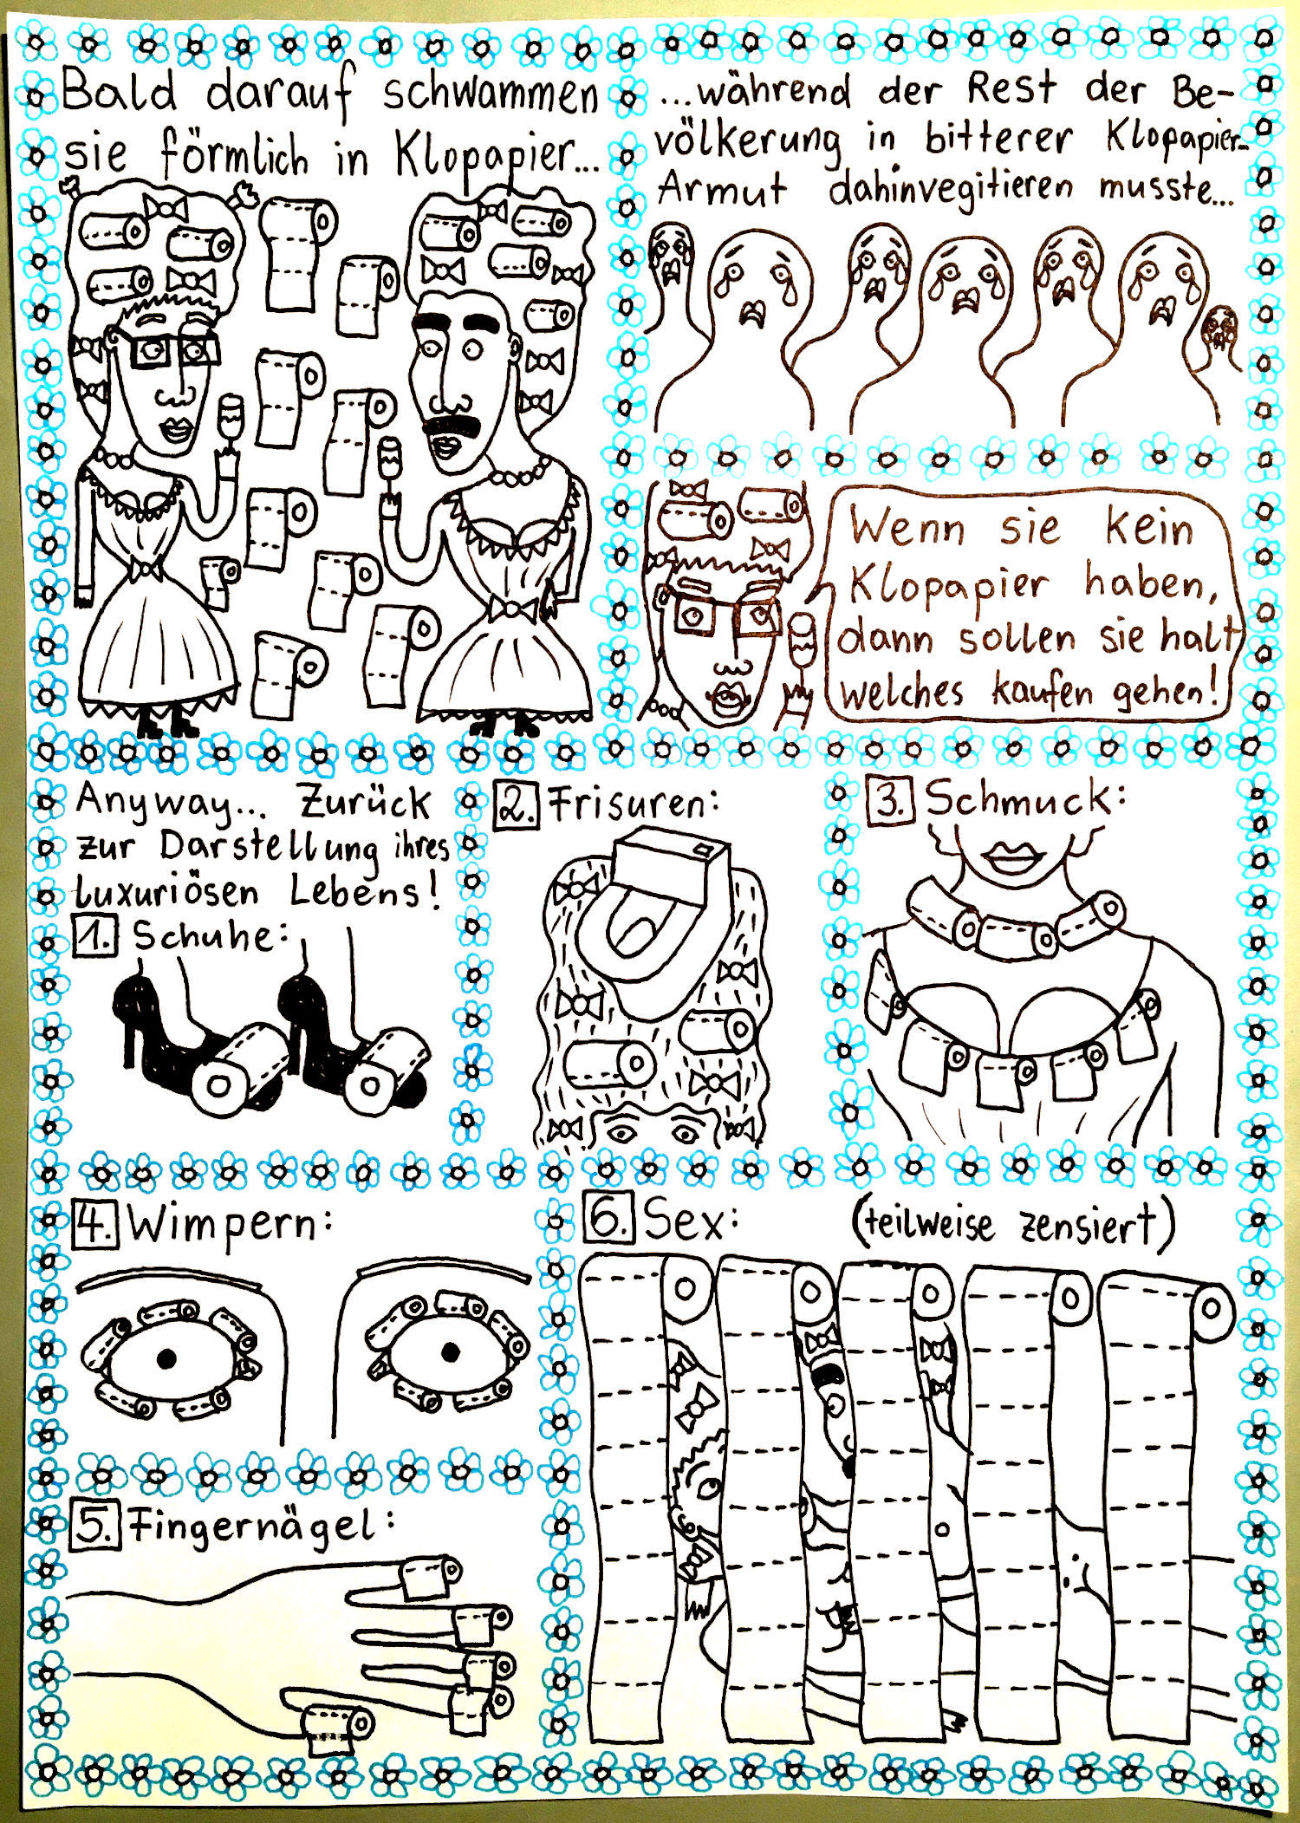 Bald darauf schwammen
sie förmlich in Klopapier...
...während der Rest der Be-
völkerung in bitterer Klopapier-
Armut dahinvegitieren musste...
Wenn sie kein
Klopapier haben,
dann sollen sie halt
welches kaufen gehen!
Anyway... Zurück
zur Darstellung ihres
luxuriösen Lebens!
1. Schuhe:
2. Frisuren:
3. Schmuck:
4. Wimpern:
5. Fingernägel:
6. Sex: (teilweise zensiert)